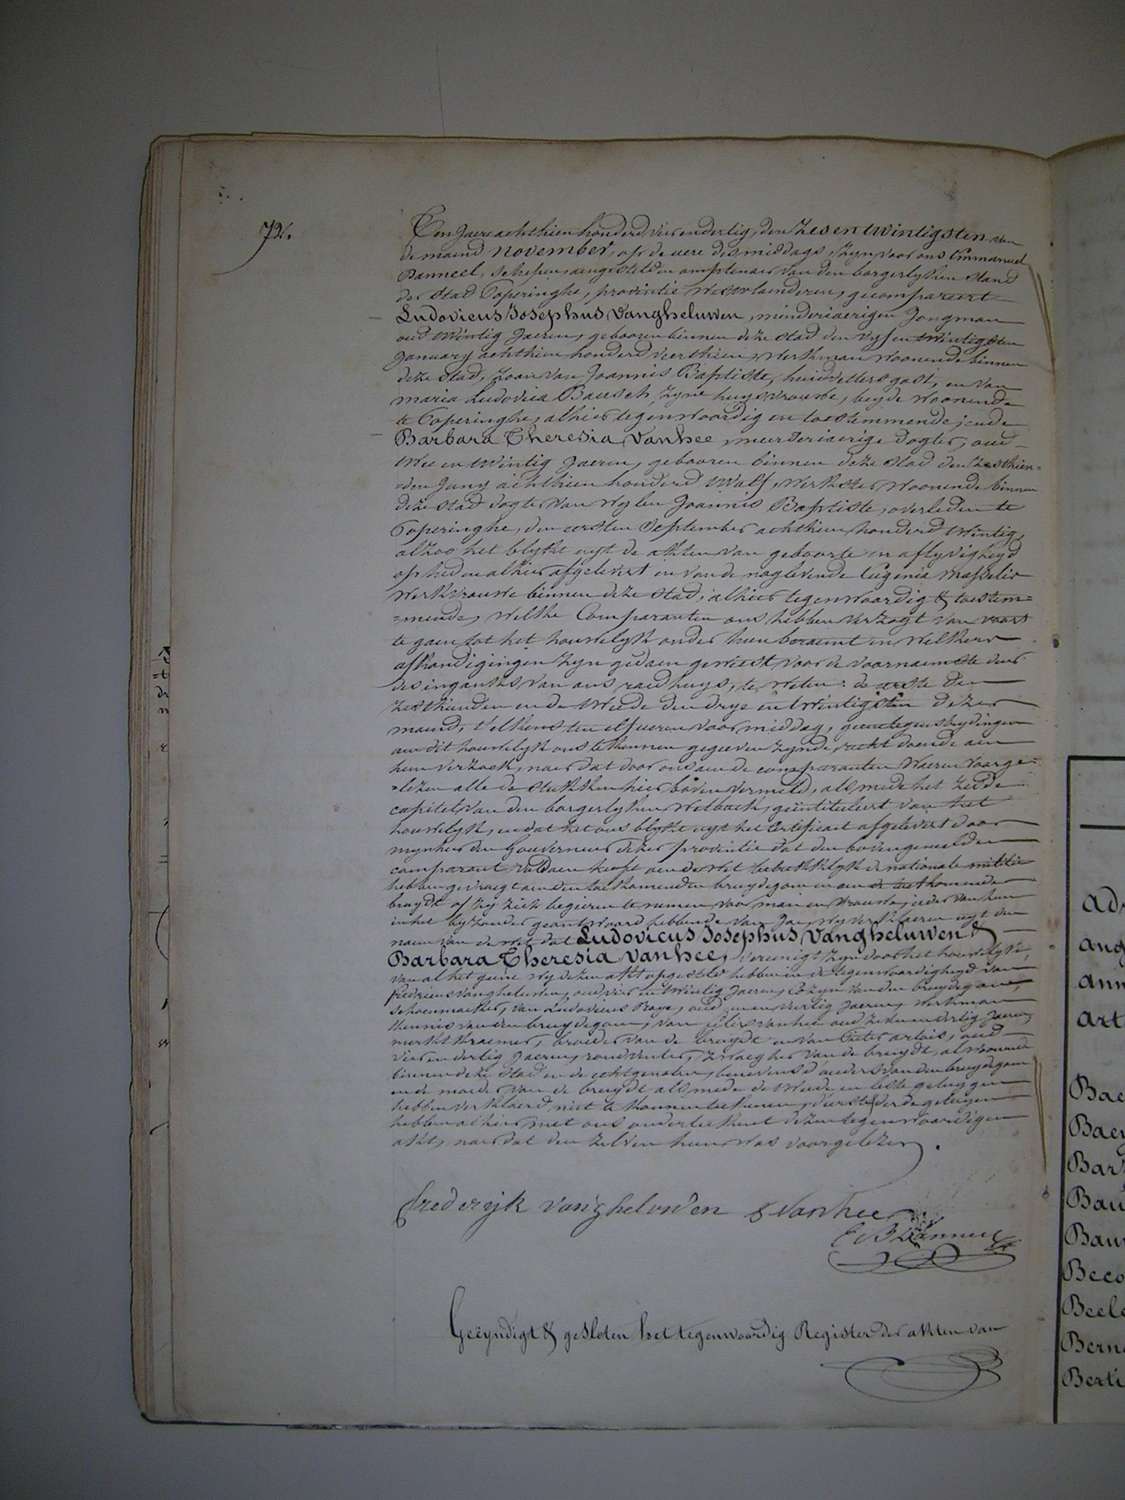 72.
Ten Jaere achthien honderd vier en dertig, den Zes en twintigsten van
de maend November, op de uere des middags, Zyn voor ons Emmanuel
Banneel, schepen aengestelden amptenaer van den borgerlyken Stand
der Stad Poperinghe, provintie Westvlaenderen, gecompareert
Ludovicus Josephus Vangheluwen, minderjaerigen Jongman
oud twintig Jaeren, gebooren binnen deze stad den vyf en twintigsten
January achthien honderd veerthien, Werkman Woonende binnen
deze Stad, Zoon van Joannis Baptiste, huidvettersgast, en van
Maria Ludovica Bausch, Zyne huysvrouwe, beyde Woonende
te Poperinghe, alhier tegenwoordig en toestemmende; ende
Barbara Theresia Vanhee, meerderjaerige dogter, oud
twee en twintig Jaeren, gebooren binnen deze Stad den Zesthien-
-den Juny achthien honderd twalf, Werkster Woonende binnen
deze Stad dogter van Wylen Joannis Baptiste, overleden te
Poperinghe, den eersten September achthien honderd twintig,
alzoo het blykt uyt de akten van geboorte en aflyvigheyd
op heden alhier afgelevert en van de naglevende Eugenia Masselis
Werkvrouwe binnen deze Stad, alhier tegenwoordig & toestem-
-mende, Welke Comparanten ons hebben verzogt van voort
te gaen tot het houwelyk onder hun beraemt en Welkers
afkondigingen Zyn gedaen geweest voor de voornaemste deur
des ingangs van ons raedhuys, te Weten: de eerste den
Zesthienden en de tweede den drye en twintigsten dezer
maend, telkens ten elf ueren voor middag, geene tegenstrydingen
aen dit houwelyk ons te kennen gegeven zynde, recht doende aen
hun verzoek, naer dat door ons aen de comparanten Waeren voorge-
-lezen alle de stukken hier boven vermeld, als mede het Zesde
capitel van den borgerlyken Wetboek, geïntituleert van het
houwelyk, en dat het ons blykt uyt het Certificaet afgelevert door
mynheer den Gouverneur dezer provintie dat den bovengemelden
comparant voldaen heeft aen de Wet betrekkelyk de nationale militie
hebben gevraegt aen den toekomenden bruydegom en aen de toekomende
bruydt of Zy Zich begeeren te nemen voor man en vrouwe, ieder van hun
in het byzonder geantwoord hebbende van Jae, Wy verklaeren uyt den
naem van de Wet dat Ludovicus Josephus Vangheluwen &
Barbara Theresia Vanhee, vereenigt Zyn door het houwelyk;
van al het geene Wy dezen akt opgesteld hebben in de tegenwoordigheyd van
Frederic Vangheluwen, oud vier en twintig Jaeren, cozyn van den bruydegom,
Schoenmaeker, van Ludovicus Raye, oud een en veertig Jaeren, Werkman
Kennis van den bruydegom, van Felix Vanhee oud Zeven en dertig Jaeren,
merktkraemer, broeder van de bruydt en van Pieter Artois, oud
vier en dertig Jaeren, rondventer, Zwaeger van de bruydt, al Woonende
binnen deze Stad en de echtgenoten, benevens d'ouders van den bruydegom
en de moeder van de bruydt als mede de tweede en leste getuygen
hebben verklaerd niet te konnen teekenen, d'eerste & derde getuygen
hebben alhier met ons onderteekent dezen tegenwoordigen
akt, naer dat den Zelven hun Was voorgelezen.
Frederyk vangheluwen F Vanhee
E Banneel
Geëyndigt & gesloten het tegenwoordig Register der akten van
Ad
Ang
Ann
Art
Bae
Baey
Bar
Bau
Bau
Beco
Beele
Bern
Berti